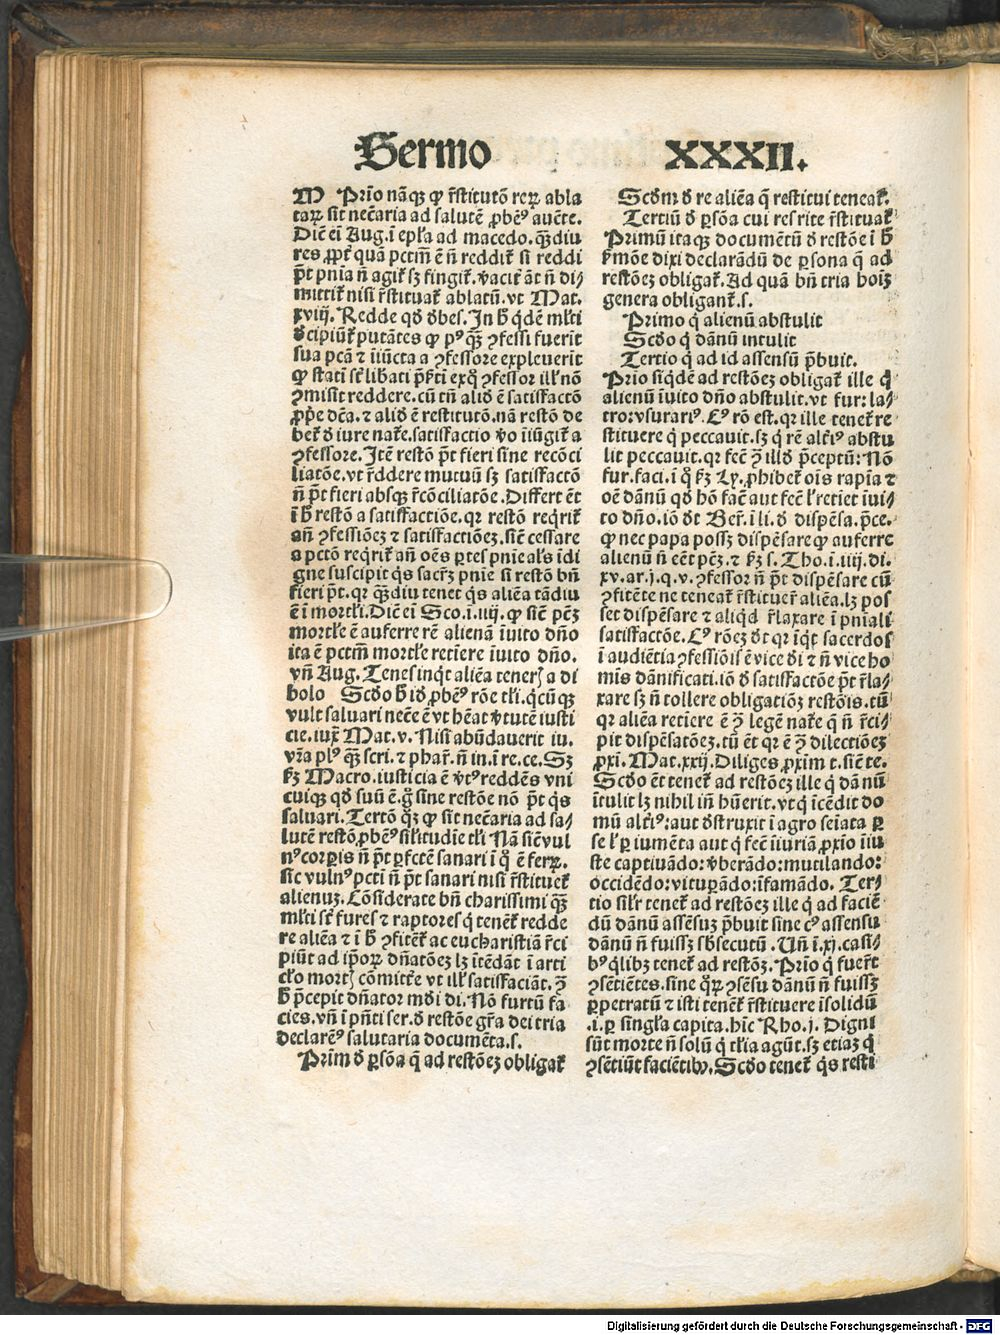 Sermo XXXII.
M Prio nāqꝫ ꝙ r̄stitutō reꝝ abla
taꝝ sit nec̄aria ad salutē ꝓbēꝰ auc̄te.
Dic̄ eī Aug. ī epl̄a ad macedo. qꝫdiu
res ꝓpt̄ quā pctm̄ ē n̄ reddit̄ si reddi
pt̄ pnia n̄ agit̄ sꝫ fingit̄. vacit̄ āt n̄ di/
mittit̄ nisi r̄stituat̄ ablatū. vt Mat.
xviij. Redde qd̄ d̄bes. In h̄ qd̄ē ml̄ti
d̄cipiūt̄ putātes ꝙ pꝰ qꝫ ꝯfessi fuerit
sua pcā ⁊ iniūcta a ꝯfessore expleuerit
ꝙ stati sr̄ libati pr̄cti exq̊ ꝯfessor ill̓ nō
ꝯmisit reddere. cū tn̄ aliđ ē satisfactō
ꝓp̓e dc̄a. ⁊ aliđ ē restitutō. nā restō de
bet̄ đ iure nat̄e. satisfactio v̓o iīūgit̄ a
ꝯfessore. Itē restō pt̄ fieri sine recōci
liatōe. vt r̄ddere mutuū sꝫ satisfactō
n̄ pt̄ fieri absqꝫ r̄cōciliatōe. Differt ēt
ī h̄ restō a satisfactiōe. qꝛ restō reqrit̄
an̄ ꝯfessiōeꝫ ⁊ satisfactiōeꝫ. sic̄ cessare
a pctō reqrit̄ an̄ oēs ꝑtes pnie als̄ īdi
gne suscipit qs sacr̄ꝫ pnie si restō bn̄
fieri pt̄. qꝛ qꝫdiu tenet qs aliēa tādiu
ē ī mortl̄i. Dic̄ eī Sco. ī. iiij. ꝙ sic̄ pc̄ꝫ
mortl̄e ē auferre rē alienā īuito dn̄o
ita ē pctm̄ mortl̄e retiere īuito dn̄o.
vn̄ Aug. Tenes inq̇t aliēa teneṝ a di
bolo Scd̓o h̄ iđ ꝓbēꝰ rōe tl̄i. q̇cūqꝫ
vult saluari nec̄e ē vt hēat v̓tutē iusti
cie. iuxͣ Mat. v. Nisi abūdauerit iu.
vr̄a plꝰ qꝫ scri. ⁊ phar̄. n̄ in. ī re. ce. Sꝫ
k̄ꝫ Macro. iusticia ē v̓tꝰ reddēs vni
cuiqꝫ qđ suū ē. g̊ sine restōe nō pt̄ qs
saluari. Tertō qꝫ ꝙ sit nec̄aria ad sa/
lutē restō ꝓbēꝰ sil̓itudie tl̄i Nā sic̄ vul
nꝰ corꝑis n̄ pt̄ ꝑfcē sanari ī q̊ ē ferꝝ.
sic vulnꝰ pcti n̄ pt̄ sanari nisi r̄stituet̄
alienuꝫ. Cōsiderate bn̄ charissimi qꝫ
ml̄ti sr̄ fures ⁊ raptores q̇ tenēt̄ redde
re aliēa ⁊ ī h̄ ꝯfitēt̄ ac eucharistiā r̄ci
piūt ad ip̄oꝝ dn̄atōeꝫ lꝫ itēdāt ī arti
cl̄o mortꝭ cōmitt̄e vt ill̓ satisfaciāt. ꝯ̄
h̄ p̄cepit dn̄ator mđi di. Nō furtū fa
cies. vn̄ ī pn̄ti ser. đ restōe gr̄a dei tria
declarēꝰ salutaria documēta. s.
Prim đ ꝑsōa q̄ ad restōeꝫ obligat̄
Scđm đ re aliēa q̄ restitui teneat̄.
Tertiū đ ꝑsōa cui res rite r̄stituat̄
Primū itaqꝫ documētū đ restōe ī h̄
s̄mōe dixi declarādū de ꝑsona q̄ ad
restōeꝫ obligat̄. Ad quā bn̄ tria hoīꝫ
genera obligant̄. s.
Primo q̇ alienū abstulit
Scđo q̇ dānū intulit
Tertio q̇ ad id assensū p̄buit.
Prio siqdē ad restōeꝫ obligat̄ ille q̇
alienū īuito dn̄o abstulit. vt fur: la/
tro: vsurariꝰ. Cꝰ rō est. qꝛ ille tenet̄ re
stituere q̇ peccauit. sꝫ q̇ rē altꝰ abstu
lit peccauit. qꝛ fec̄ ꝯ̄ illđ p̄ceptū: Nō
fur. faci. ī q̊ k̄ꝫ Ly. ꝓhibet̄ oīs rapīa ⁊
oē dānū qđ hō fac̄ aut fec̄ l̓ retiet īui/
to dn̄o. iō dt̄ Ber̄. ī li. đ dispēsa. p̄ce.
ꝙ nec papa possꝫ dispēsare ꝙ auferre
alienū n̄ eēt pc̄ꝫ. ⁊ k̄ꝫ s. Tho. ī. iiij. di.
xv. ar. j. q. v. ꝯfessor n̄ pt̄ dispēsare cū
ꝯfitēte ne teneat̄ r̄stituer̄ aliēa. lꝫ pos
set dispēsare ⁊ aliq̇d r̄laxare ī pniali
satisfactōe. Cꝰ rōeꝫ dt̄ qꝛ iq̇t sacerdos
ī audiētia ꝯfessiōis ē vice đi ⁊ n̄ vice ho
mis dānificati. iō đ satisfactōe pt̄ r̄la/
xare sꝫ n̄ tollere obligatiōꝫ restōis. tū
qꝛ aliēa retiere ē ꝯ̄ legē nat̄e q̄ n̄ r̄ci/
pit dispēsatōeꝫ. tū ēt qꝛ ē ꝯ̄ dilectiōeꝫ
ꝓxi. Mat. xxij. Diliges ꝓxim t. sic̄ te.
Scđo ēt tenet̄ ad restōeꝫ ille q̇ dānū
ītulit lꝫ nihil in̄ hūerit. vt q̇ īcēdit do
mū altꝰ: aut đstruxit ī agro seīata ꝑ
se l̓ ꝑ iumēta aut q̇ fec̄ iīuriā ꝓxīo īiu
ste captiuādo: v̓berādo: mutilando:
occidēdo: vituꝑādo: īfamādo. Ter/
tio sil̓r tenet̄ ad restōeꝫ ille q̇ ad faciē
dū dānū assēsuꝫ p̄buit sine cꝰ assensu
dānū n̄ fuissꝫ sb̓secutū. Un̄ ī. xj. casi/
bꝰ q̇libꝫ tenet̄ ad restōꝫ. Prio q̇ fuer̄t
ꝯsētiētes. sine qꝝ ꝯsēsu dānū n̄ fuissꝫ
ꝑpetratū ⁊ isti tenēt̄ r̄stituere īsolidū
.i. ꝑ singl̄a capita. hīc Rho. j. Digni
sūt morte n̄ solū q̇ tl̄ia agūt. sꝫ etiaꝫ q̇
ꝯsētiūt faciētibꝰ. Scđo tenet̄ q̇s resti
Digitalisierung gefördert durch die Deutsche Forschungsgemeinschaft - DFG